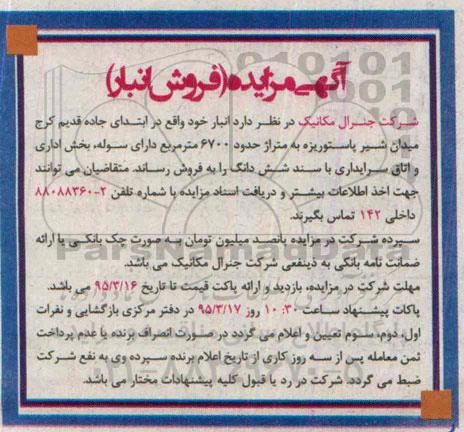 آگهی مزایده (فروش انبار)
شرکت جنرال مکانیک در نظر دارد انبار خود واقع در ابتدای جاده قدیم کرج
میدان شیر پاستوریزه به متراژ حدود ۶۷۰۰ مترمربع دارای سوله، بخش اداری
و اتاق سرایداری با سند شش دانگ را به فروش رساند. متقاضیان می توانند
جهت اخذ اطلاعات بیشتر و دریافت اسناد مزایده با شماره تلفن ۲-۸۸۰۸۸۳۶۰
داخلی ۱۴۲ تماس بگیرند.
سپرده شرکت در مزایده پانصد میلیون تومان به صورت چک بانکی یا ارائه
ضمانت نامه بانکی به ذینفعی شرکت جنرال مکانیک می باشد.
مهلت شرکت در مزایده، بازدید و ارائه پاکت قیمت تا تاریخ ۹۵/۳/۱۶ می باشد.
پاکات پیشنهاد ساعت ۱۰:۳۰ روز ۹۵/۳/۱۷ در دفتر مرکزی بازگشایی و نفرات
اول، دوم، سوم تعیین و اعلام می گردد در صورت انصراف برنده یا عدم پرداخت
ثمن معامله پس از سه روز کاری از تاریخ اعلام برنده سپرده وی به نفع شرکت
ضبط می گردد. شرکت در رد یا قبول کلیه پیشنهادات مختار می باشد.